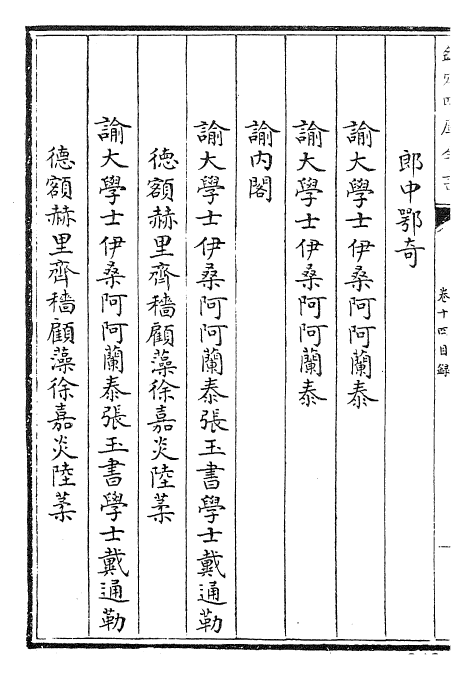 欽定四庫全書
卷十四目録
郎中鄂奇
諭大學士伊桑阿阿蘭泰
諭大學士伊桑阿阿蘭泰
諭内閣
諭大學士伊桑阿阿蘭泰張玉書學士戴通勒
德額赫里齊穡顧藻徐嘉炎陸葇
諭大學士伊桑阿阿蘭泰張玉書學士戴通勒
德額赫里齊穡顧藻徐嘉炎陸葇